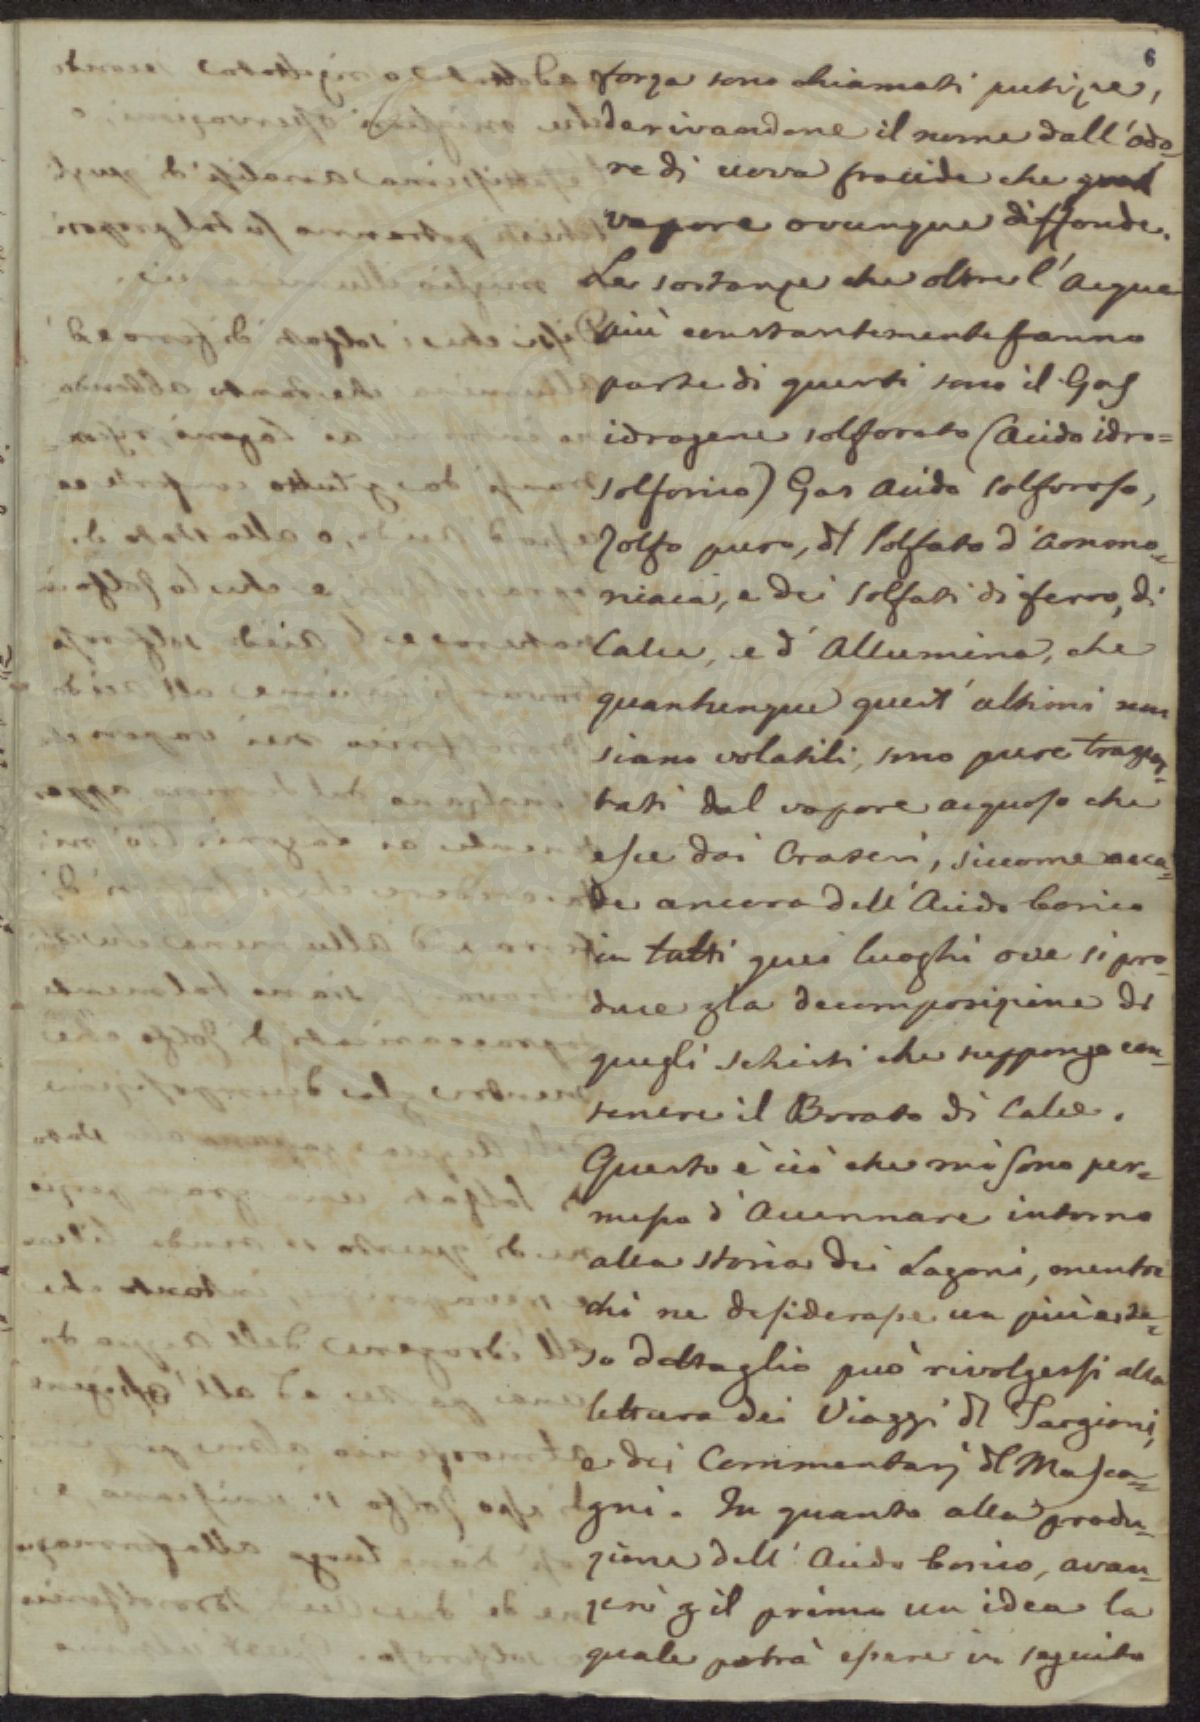 6
forza sono chiamati putizze,
derivandone il nome dall'odo-
re di uova fracide che quel
vapore ovunque diffonde.
Le sostanze che oltre l'Acqua
più constantemente fanno
parte di questi sono il Gas
idrogene solforato (Acido idro=
solforico) Gas Acido solforoso,
Zolfo puro, del Solfato d'Ammo-
niaca, e dei solfati di ferro, di
Calce, e d'Allumina, che
quantunque quest'ultimi non
siano volatili, sono pure traspor-
tati dal vapore acquoso che
esce dai Crateri, siccome acca-
de ancora dell'Acido borico
in tutti quei luoghi ove si pro-
duce p la decomposizione di
quegli schisti che suppongo con-
tenere il Borato di Calce.
Questo è ciò che mi sono per-
messo d'Accennare intorno
alla storia dei Lagoni, mentre
chi ne desiderasse un più este-
so dettaglio può rivolgersi alla
lettura dei Viaggi del Targioni,
e dei Commentarj del Masca-
gni. In quanto alla produ-
zione dell'Acido borico, avan-
zerò p il primo un idea la
quale potrà essere in seguito